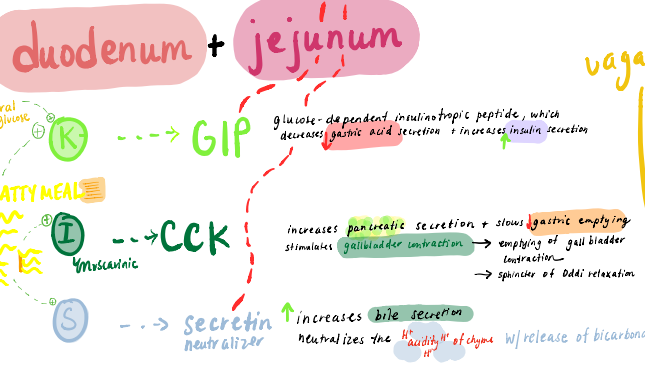 duodenum + jejunum
vaga
oral
glucose
K
GIP
glucose-dependent insulinotropic peptide, which
decreases gastric acid secretion + increases insulin secretion
FATTY MEAL
I
CCK
muscarinic
increases pancreatic secretion + slows gastric emptying
stimulates gallbladder contraction → emptying of gall bladder
contraction
→ sphincter of Oddi relaxation
S
secretin
neutralizer
increases bile secretion
neutralizes the H+ acidity H+ of chyme w/ release of bicarbona
H+